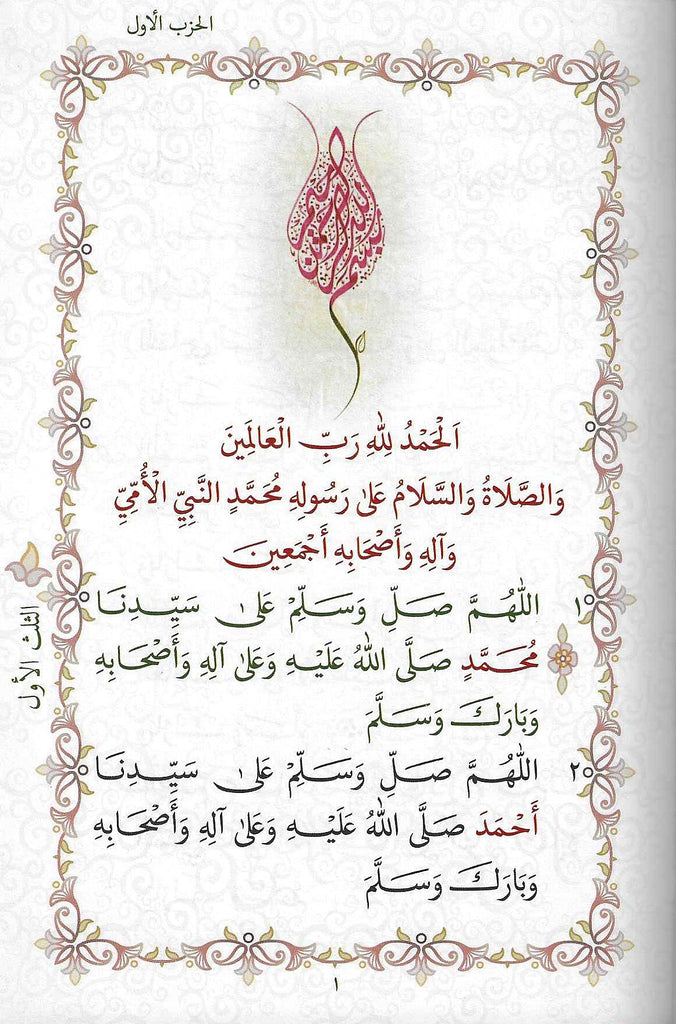 الحزب الأول
بسم الله الرحمن الرحيم
اَلْحَمْدُ لِلّٰهِ رَبِّ الْعَالَمِينَ
وَالصَّلَاةُ وَالسَّلَامُ عَلٰى رَسُولِهِ مُحَمَّدٍ النَّبِيِّ الْأُمِّيِّ
وَآلِهِ وَأَصْحَابِهِ أَجْمَعِينَ
١ اللّٰهُمَّ صَلِّ وَسَلِّمْ عَلٰى سَيِّدِنَا
مُحَمَّدٍ صَلَّى اللّٰهُ عَلَيْهِ وَعَلٰى آلِهِ وَأَصْحَابِهِ
وَبَارَكَ وَسَلَّمَ
٢ اللّٰهُمَّ صَلِّ وَسَلِّمْ عَلٰى سَيِّدِنَا
أَحْمَدَ صَلَّى اللّٰهُ عَلَيْهِ وَعَلٰى آلِهِ وَأَصْحَابِهِ
وَبَارَكَ وَسَلَّمَ
الثلث الأول
١